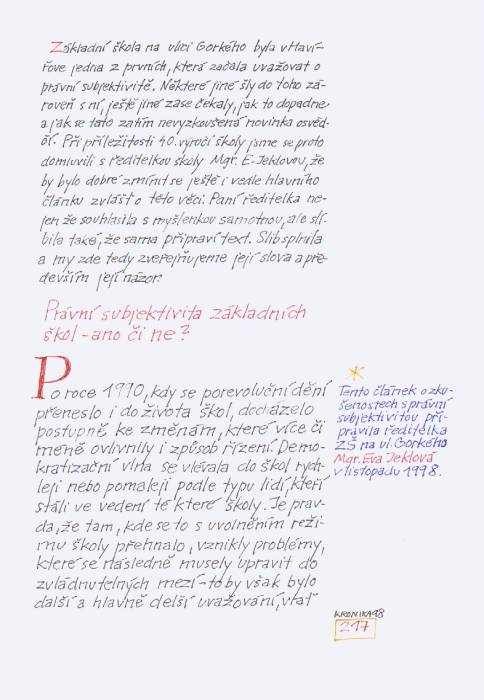 Základní škola na ulici Gorkého byla v Haví-
řově jedna z prvních, která začala uvažovat o
právní subjektivitě. Některé jiné šly do toho zá-
roveň s ní, ještě jiné zase čekaly, jak to dopadne
a jak se tato zatím nevyzkoušená novinka osvěd-
čí. Při příležitosti 40. výročí školy jsme se proto
domluvili s ředitelkou školy Mgr. E. Jeklovou, že
by bylo dobré zmínit se ještě i vedle hlavního
článku zvlášť o této věci. Paní ředitelka ne-
jen že souhlasila s myšlenkou samotnou, ale slí-
bila také, že sama připraví text. Slib splnila
a my zde tedy zveřejňujeme její slova a pře-
devším její názor.
Právní subjektivita základních
škol - ano či ne?
Po roce 1990, kdy se porevoluční dění
přeneslo i do života škol, docházelo
postupně ke změnám, které více či
méně ovlivnily i způsob řízení. Demo-
kratizační vlna se vlévala do škol rych-
leji nebo pomaleji podle typu lidí, kteří
stáli ve vedení té které školy. Je prav-
da, že tam, kde se to s uvolněním reži-
mu školy přehnalo, vznikly problémy,
které se následně musely upravit do
zvládnutelných mezí - to by však bylo
další a hlavně delší uvažování, vrať
Tento článek o zku-
šenostech s právní
subjektivitou při-
pravila ředitelka
ZŠ na ul. Gorkého
Mgr. Eva Jeklová
v listopadu 1998.
KRONIKA 98
217